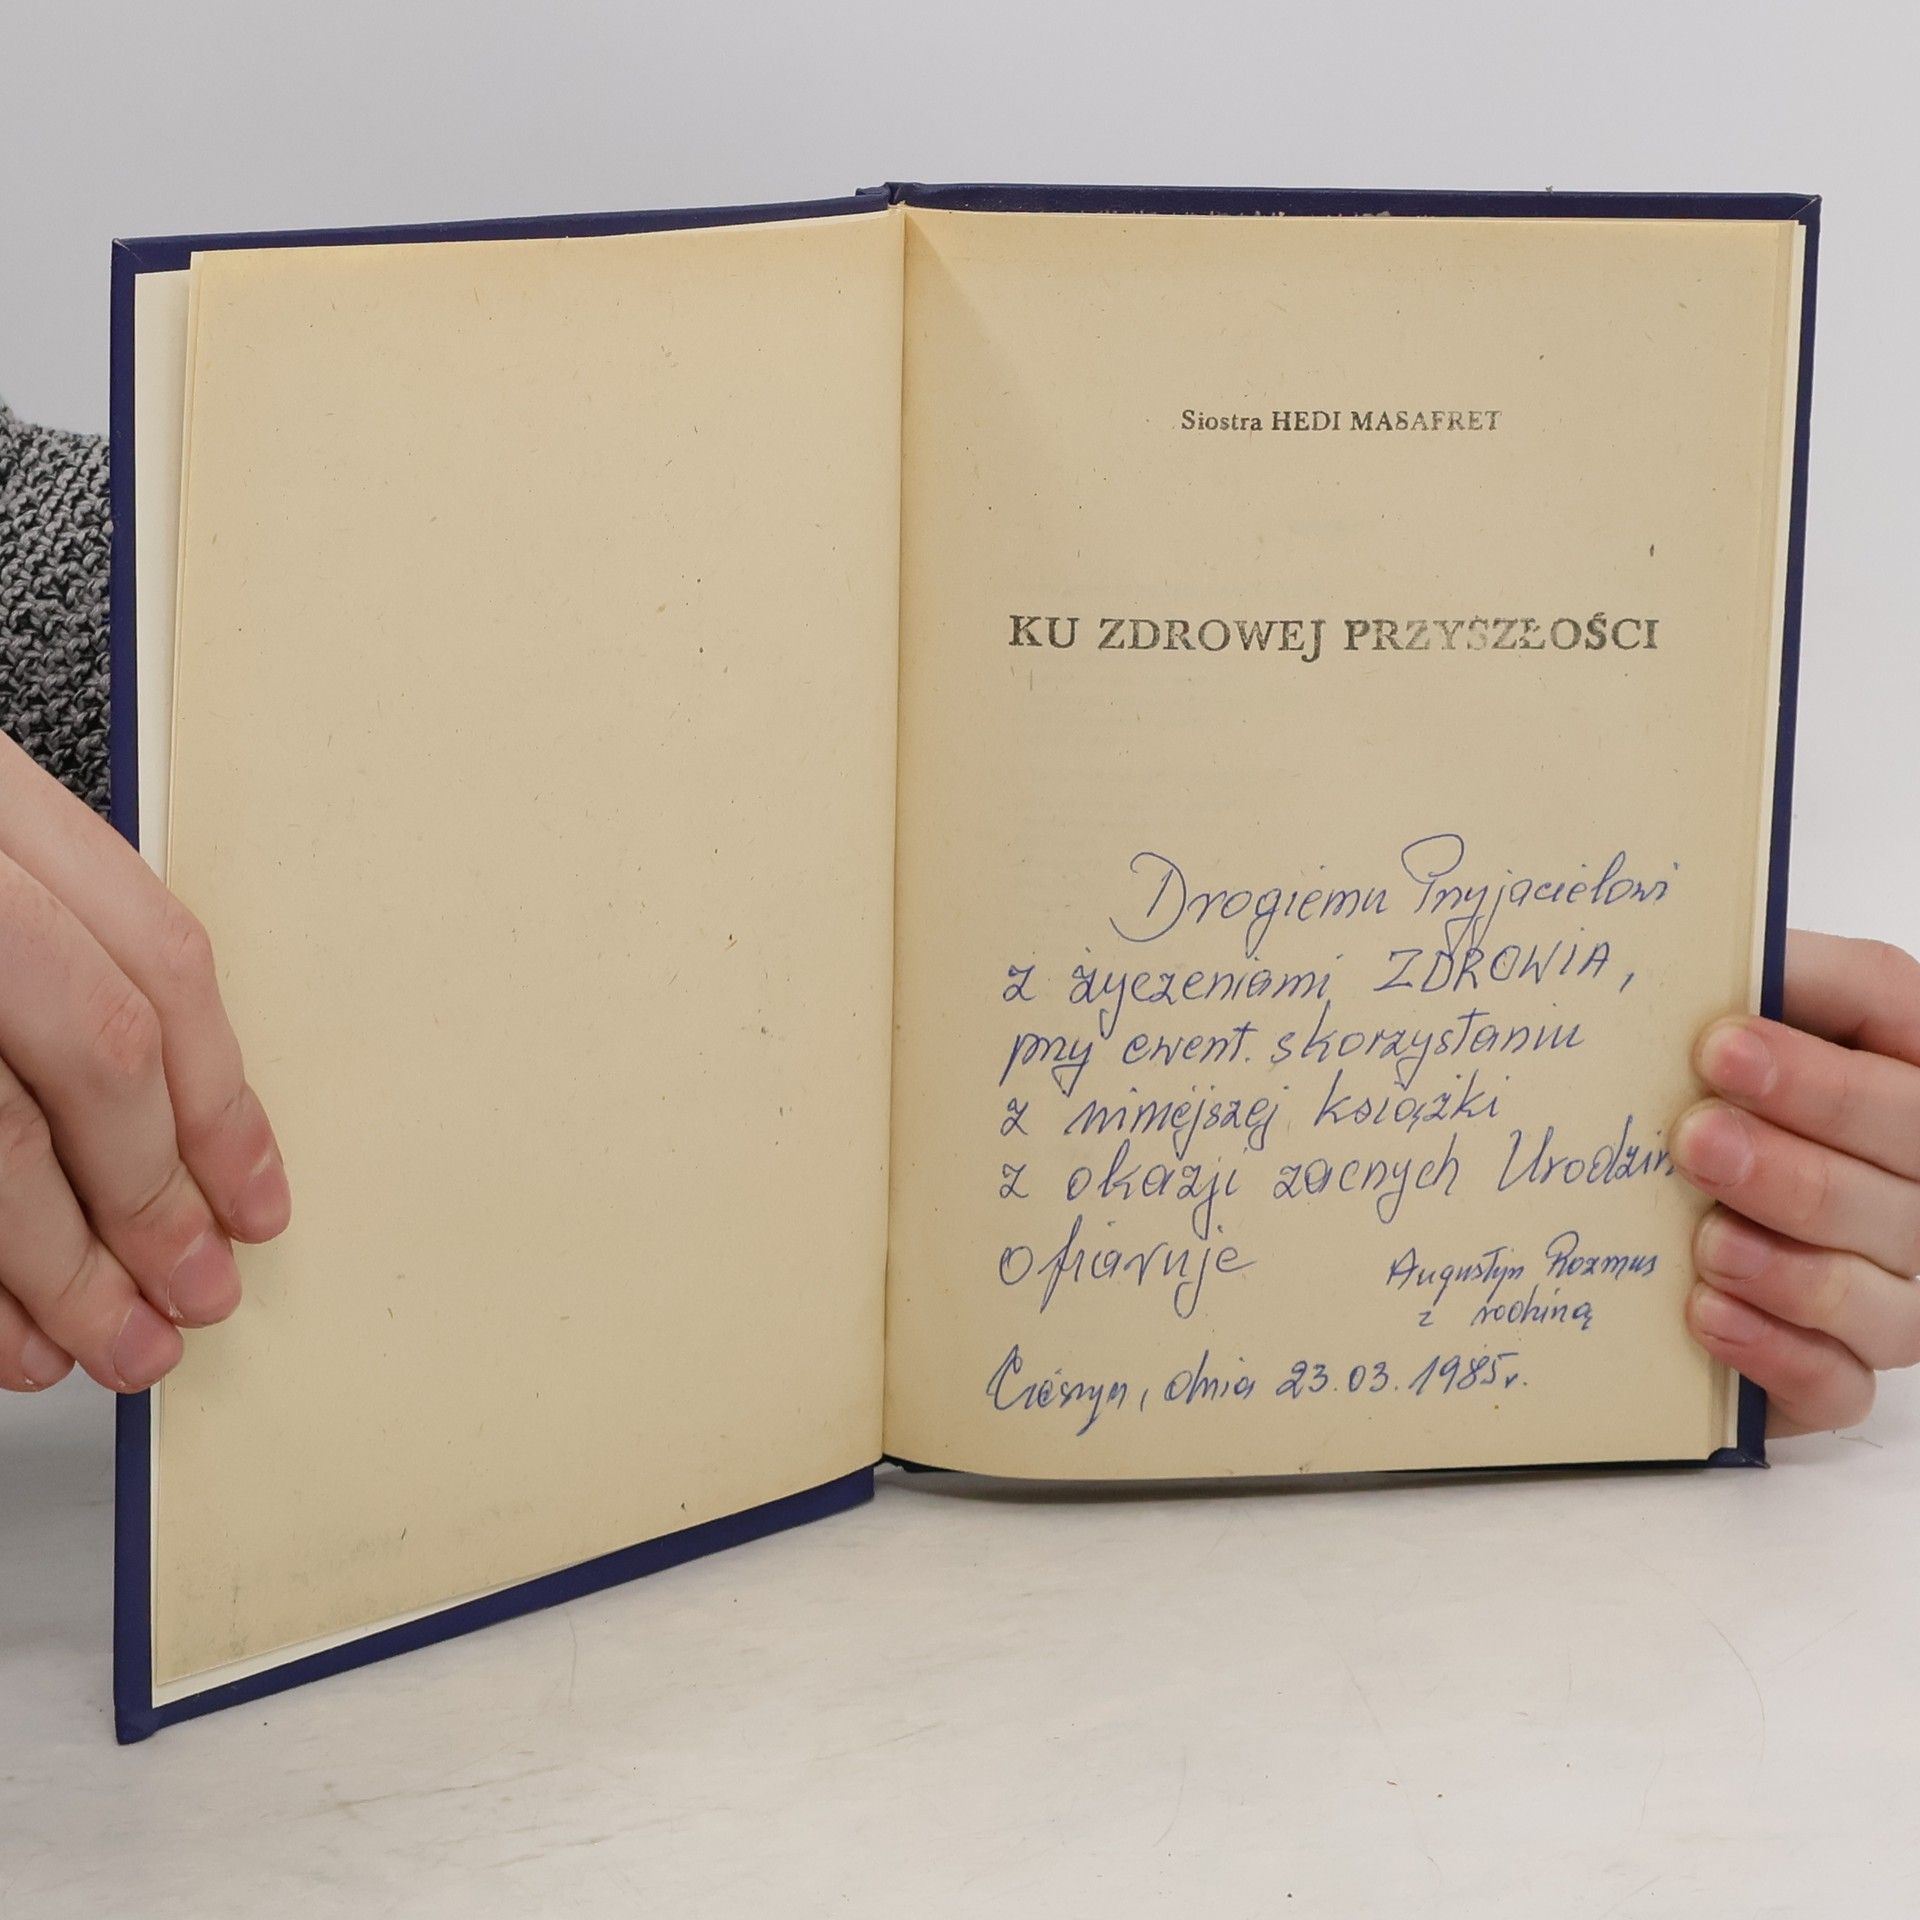 Siostra HEDI MASAFRET
KU ZDROWEJ PRZYSZŁOŚCI
Drogiemu Przyjacielowi
z życzeniami ZDROWIA,
przy ewent. skorzystaniu
z niniejszej książki
z okazji zacnych Urodzin
ofiaruje
Augustyn Rozmus
z rodziną
Cieszyn, dnia 23.03.1985r.